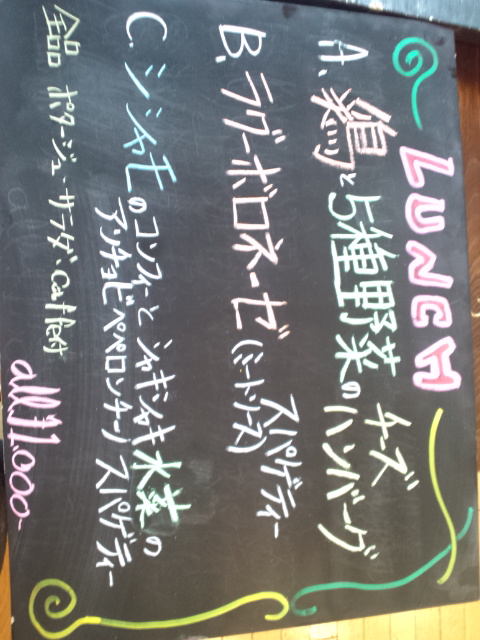 LUNCH
A. 鶏と5種野菜のチーズハンバーグ
B. ラグーボロネーゼ(ミートソース)スパゲティー
C. シシャモのコンフィーとシャキシャキ水菜の
アンチョビペペロンチーノスパゲティー
全品 ポタージュ、サラダ、Caffe付
all ¥1,000-